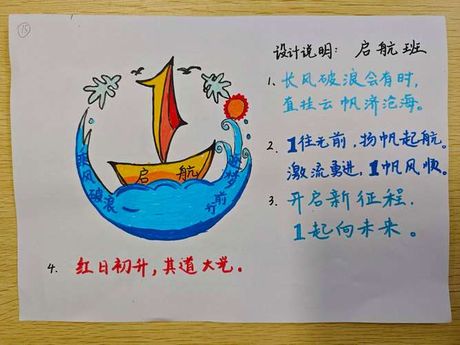 15
设计说明：启航班
1. 长风破浪会有时，
直挂云帆济沧海。
2. 1往无前，扬帆起航。
激流勇进，1帆风快。
3. 开启新征程，
1起向未来。
4. 红日初升，其道大光。
启航
乘风破浪
逐梦前行